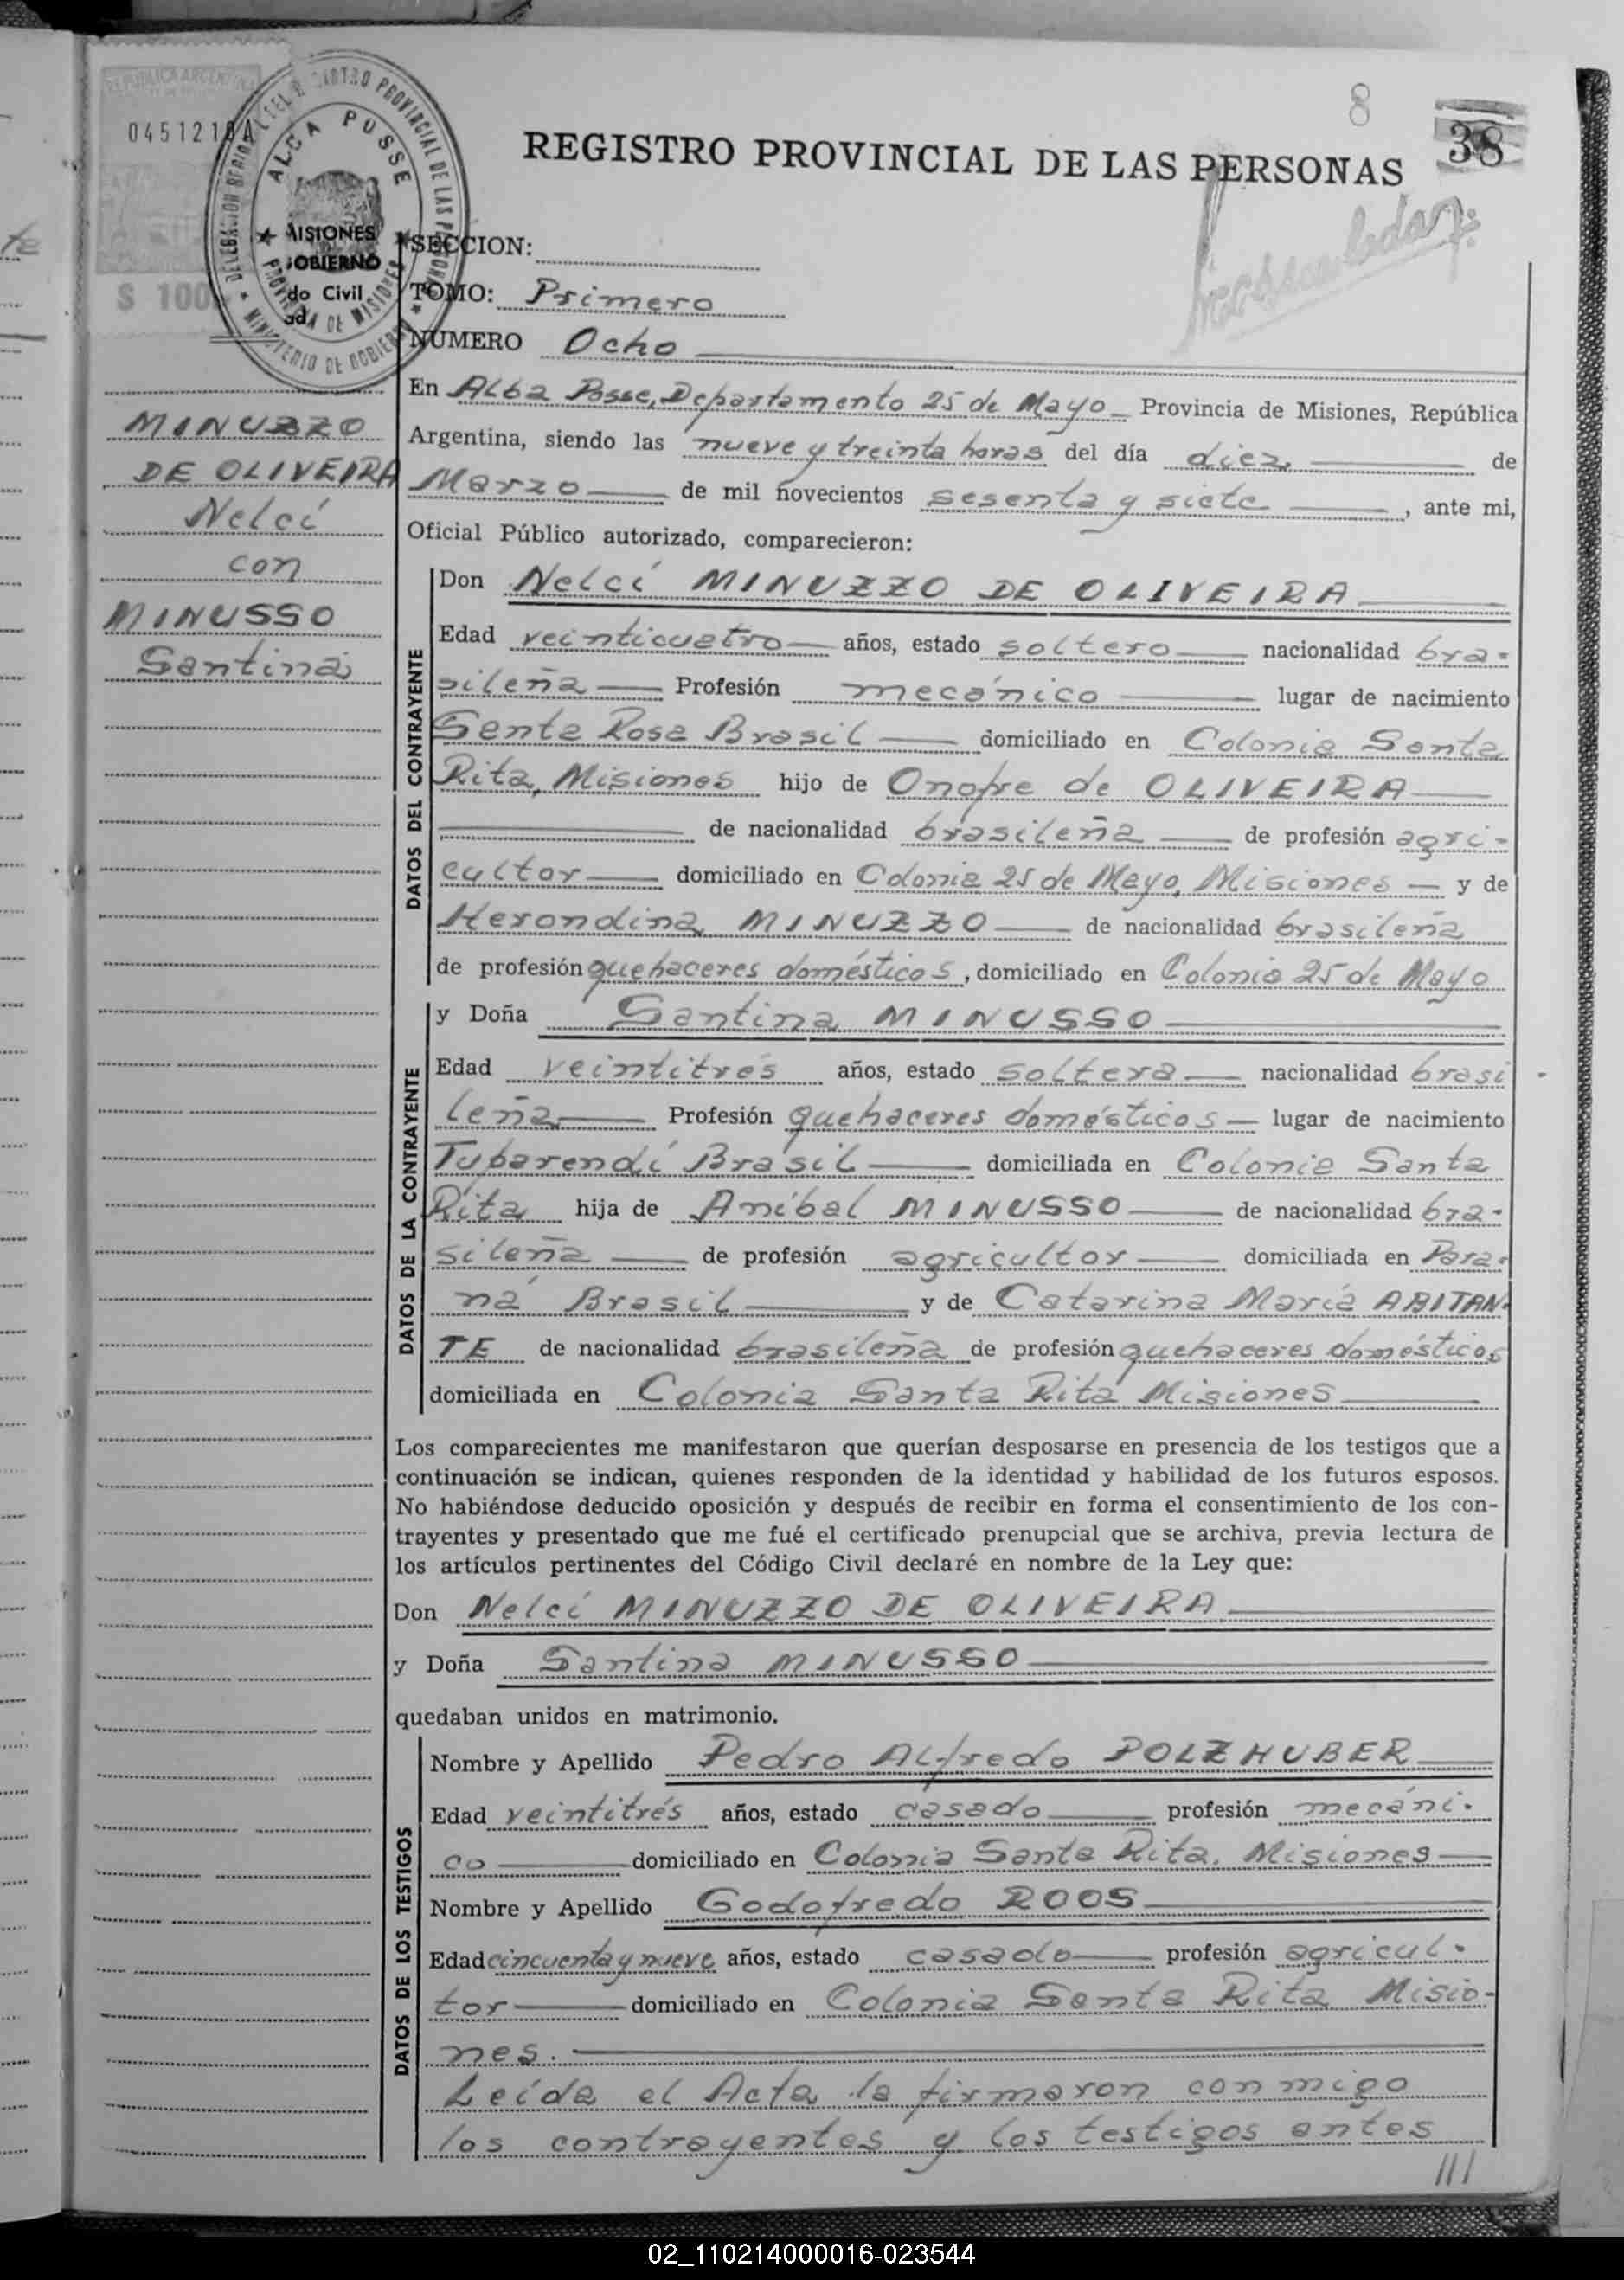 8
38
REGISTRO PROVINCIAL DE LAS PERSONAS
REPUBLICA ARGENTINA
0451210A
$ 100
PROVINCIAL DE LAS
MINISTERIO DE GOBIERNO
PROVINCIA DE MISIONES
MISIONES
GOBIERNO
do Civil
SECCION:
TOMO: Primero
NUMERO Ocho
En Alba Posse, Departamento 25 de Mayo Provincia de Misiones, República
Argentina, siendo las nueve y treinta horas del día diez de
Marzo de mil novecientos sesenta y siete, ante mi,
Oficial Público autorizado, comparecieron:
MINUZZO
DE OLIVEIRA
Nelcí
con
MINUSSO
Santina
DATOS DEL CONTRAYENTE
Don Nelcí MINUZZO DE OLIVEIRA
Edad veinticuatro años, estado soltero nacionalidad bra-
sileña Profesión mecánico lugar de nacimiento
Santa Rosa Brasil domiciliado en Colonia Santa
Rita, Misiones hijo de Onofre de OLIVEIRA
de nacionalidad brasileña de profesión agri-
cultor domiciliado en Colonia 25 de Mayo, Misiones y de
Herondina MINUZZO de nacionalidad brasileña
de profesión quehaceres domésticos, domiciliado en Colonia 25 de Mayo
DATOS DE LA CONTRAYENTE
y Doña Santina MINUSSO
Edad veintitrés años, estado soltera nacionalidad brasi-
leña Profesión quehaceres domésticos lugar de nacimiento
Tubarendí Brasil domiciliada en Colonia Santa
Rita hija de Aníbal MINUSSO de nacionalidad bra-
sileña de profesión agricultor domiciliada en Para-
ná Brasil y de Catarina María ABITAN-
TE de nacionalidad brasileña de profesión quehaceres domésticos
domiciliada en Colonia Santa Rita Misiones
Los comparecientes me manifestaron que querían desposarse en presencia de los testigos que a
continuación se indican, quienes responden de la identidad y habilidad de los futuros esposos.
No habiéndose deducido oposición y después de recibir en forma el consentimiento de los con-
trayentes y presentado que me fué el certificado prenupcial que se archiva, previa lectura de
los artículos pertinentes del Código Civil declaré en nombre de la Ley que:
Don Nelcí MINUZZO DE OLIVEIRA
y Doña Santina MINUSSO
quedaban unidos en matrimonio.
DATOS DE LOS TESTIGOS
Nombre y Apellido Pedro Alfredo POLZHUBER
Edad veintitrés años, estado casado profesión mecáni-
co domiciliado en Colonia Santa Rita. Misiones
Nombre y Apellido Godofredo ROOS
Edad cincuenta y nueve años, estado casado profesión agricul-
tor domiciliado en Colonia Santa Rita Misio-
nes.
Leída el Acta la firmaron conmigo
los contrayentes y los testigos antes
///
02_110214000016-023544